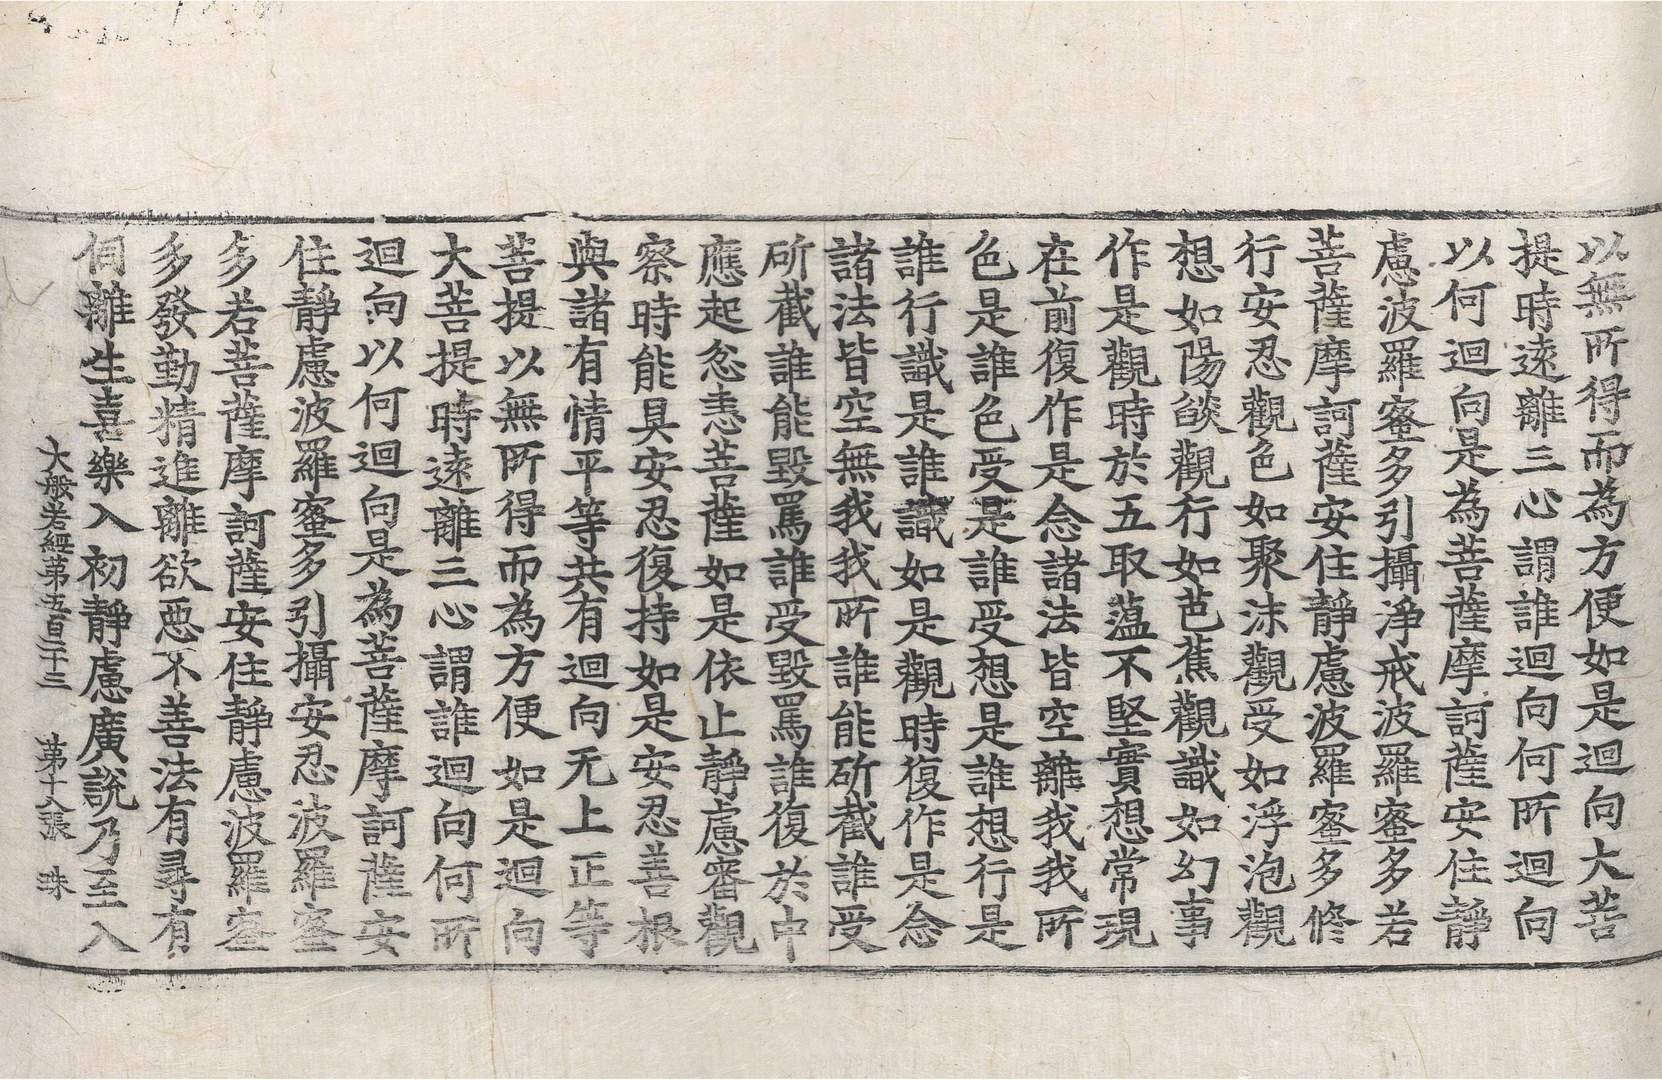 以無所得而為方便如是迴向大菩
提時遠離三心謂誰迴向何所迴向
以何迴向是為菩薩摩訶薩安住靜
慮波羅蜜多引攝淨戒波羅蜜多若
菩薩摩訶薩安住靜慮波羅蜜多修
行安忍觀色如聚沫觀受如浮泡觀
想如陽焰觀行如芭蕉觀識如幻事
作是觀時於五取蘊不堅實想常現
在前復作是念諸法皆空離我我所
色是誰色受是誰受想是誰想行是
誰行識是誰識如是觀時復作是念
諸法皆空無我我所誰能斫截誰受
斫截誰能毀罵誰受毀罵誰復於中
應起忿恚菩薩如是依止靜慮審觀
察時能具安忍復持如是安忍善根
與諸有情平等共有迴向无上正等
菩提以無所得而為方便如是迴向
大菩提時遠離三心謂誰迴向何所
迴向以何迴向是為菩薩摩訶薩安
住靜慮波羅蜜多引攝安忍波羅蜜
多若菩薩摩訶薩安住靜慮波羅蜜
多發勤精進離欲惡不善法有尋有
伺離生喜樂入初靜慮廣說乃至入
大般若經第五百二十三 第十八張 珠